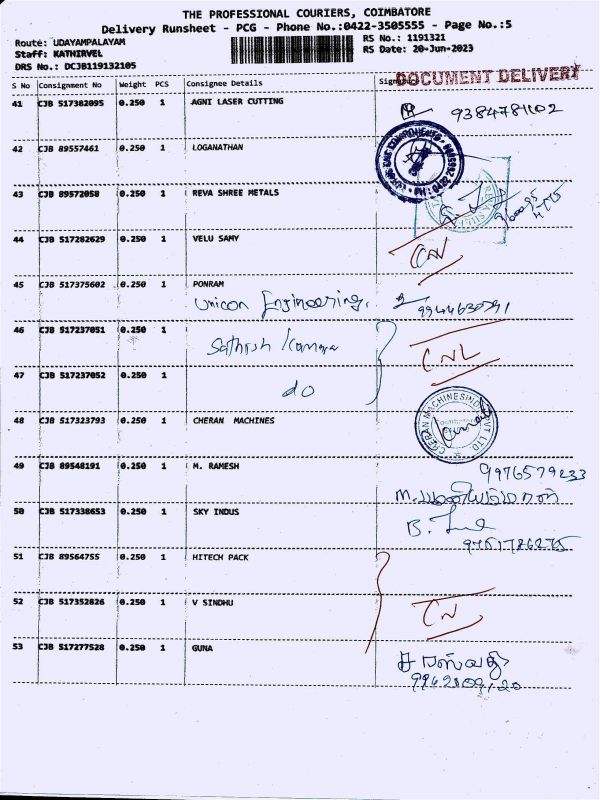 THE PROFESSIONAL COURIERS, COIMBATORE
Delivery Runsheet - PCG - Phone No.:0422-3505555 - Page No.:5
Route: UDAYAMPALAYAM RS No.: 1191321
Staff: KATHIRVEL RS Date: 20-Jun-2023
DRS No.: DCJB119132105
DOCUMENT DELIVERY
S No Consignment No Weight PCS Consignee Details Signature
41 CJB 517382095 0.250 1 AGNI LASER CUTTING 9384781102
42 CJB 89557461 0.250 1 LOGANATHAN
43 CJB 89572058 0.250 1 REVA SHREE METALS
44 CJB 517282629 0.250 1 VELU SAMY CN
45 CJB 517375602 0.250 1 PONRAM
Unicon Engineering.
46 CJB 517237051 0.250 1 Sathish Kumar CNL
47 CJB 517237052 0.250 1
do
48 CJB 517323793 0.250 1 CHERAN MACHINES
CHERAN MACHINES INDIA PVT LTD
49 CJB 89548191 0.250 1 M. RAMESH 9976579233
50 CJB 517338653 0.250 1 SKY INDUS
51 CJB 89564755 0.250 1 HITECH PACK
52 CJB 517352826 0.250 1 V SINDHU CN
53 CJB 517277528 0.250 1 GUNA